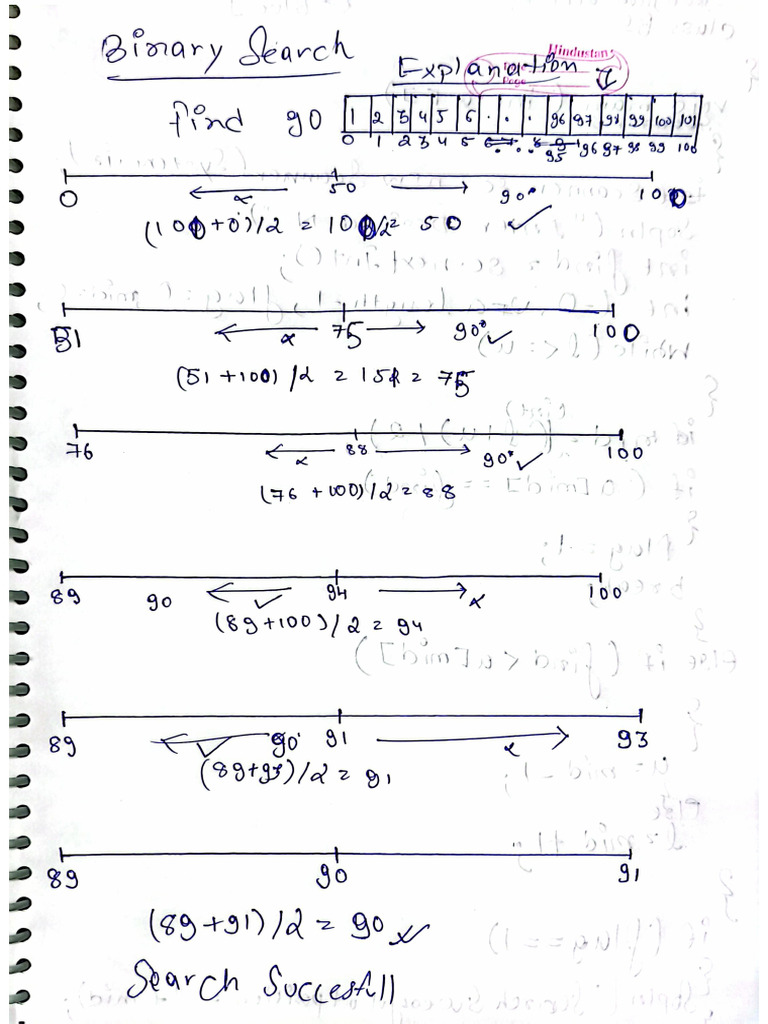 Binary Search
Hindustan
Explanation
Page
find 90
1 2 3 4 5 6 . . . 96 97 98 99 100 101
0 1 2 3 4 5 95 96 97 98 99 100
0 50 90 100
(100+0)/2 = 100/2 = 50 ✓
51 75 90 ✓ 100
(51+100)/2 = 151 = 75
76 88 90 ✓ 100
(76+100)/2 = 88
89 90 94 100
(89+100)/2 = 94
89 90 91 93
(89+93)/2 = 91
89 90 91
(89+91)/2 = 90
Search Succesfull